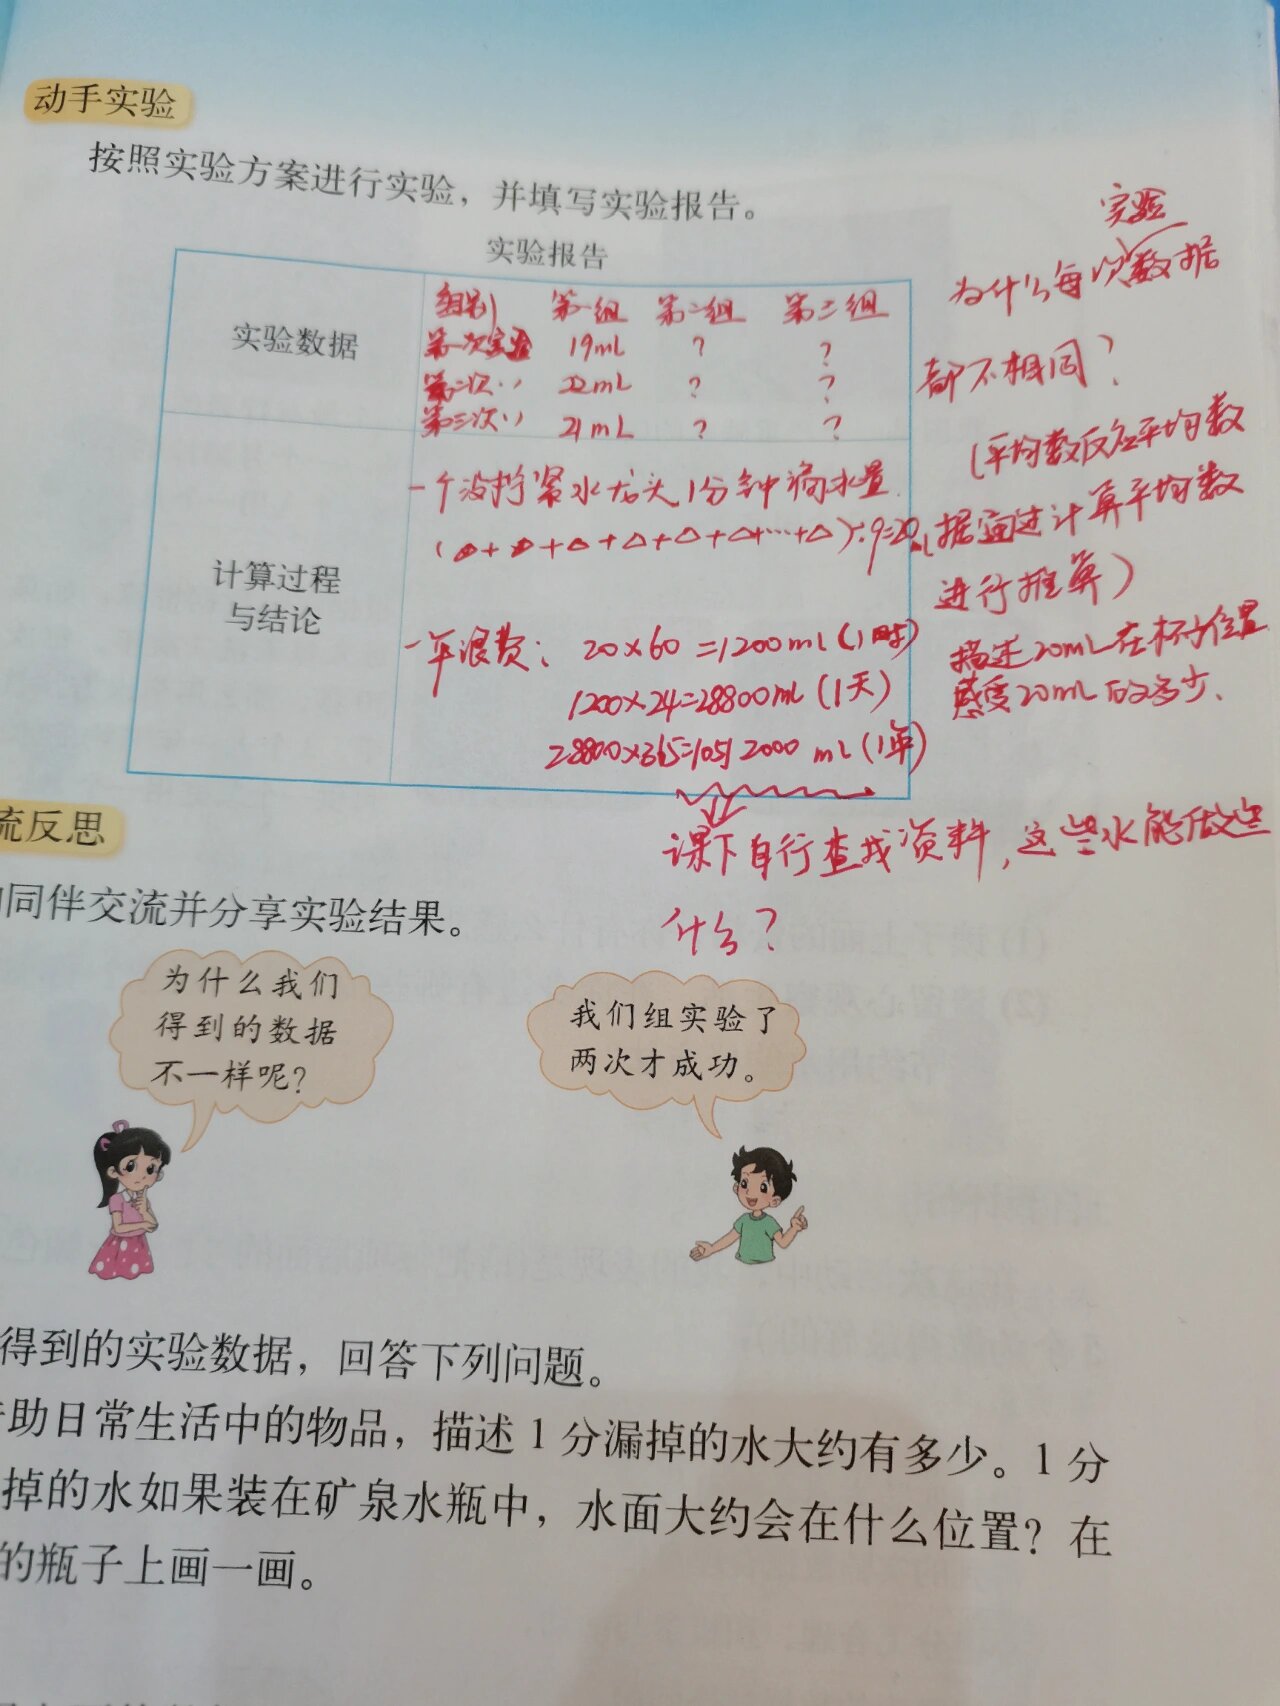 动手实验
按照实验方案进行实验，并填写实验报告。
实验报告
实验数据
组别 第一组 第二组 第三组
第一次实验 19mL ? ?
第二次〃 22mL ? ?
第三次〃 21mL ? ?
计算过程
与结论
一个没拧紧水龙头1分钟滴水量
(△+△+△+△+△+△+…+△)÷9=20mL
一年浪费：20×60=1200mL(1时)
1200×24=28800mL(1天)
28800×365=10512000mL(1年)
课下自行查找资料，这些水能做些
什么？
实验
为什么每次数据
都不相同？
(平均数反应平均数
据通过计算平均数
进行推算)
描述20mL在杯子位置
感受20mL的多少.
流反思
同伴交流并分享实验结果。
为什么我们
得到的数据
不一样呢?
我们组实验了
两次才成功。
得到的实验数据，回答下列问题。
助日常生活中的物品，描述1分漏掉的水大约有多少。1分
掉的水如果装在矿泉水瓶中，水面大约会在什么位置？在
的瓶子上画一画。